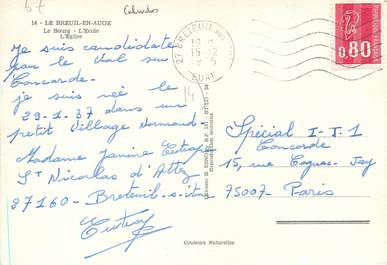 67
Calvados
14 - LE BREUIL-EN-AUGE
Le Bourg - L'Ecole
L'Eglise
Je suis candidate
pour le vol sur
Concorde.
je suis née le
29-1-37 dans un
petit Village Normand
Madame Janine
St Nicolas d'Attez
27160 - Breteuil-s-iton
27 BRETEUIL
15-12
EURE
14
0,80
Spécial I-T-1
Concorde
15, rue Cognac-Jay
75007 - Paris
Couleurs Naturelles
Reproduction interdite